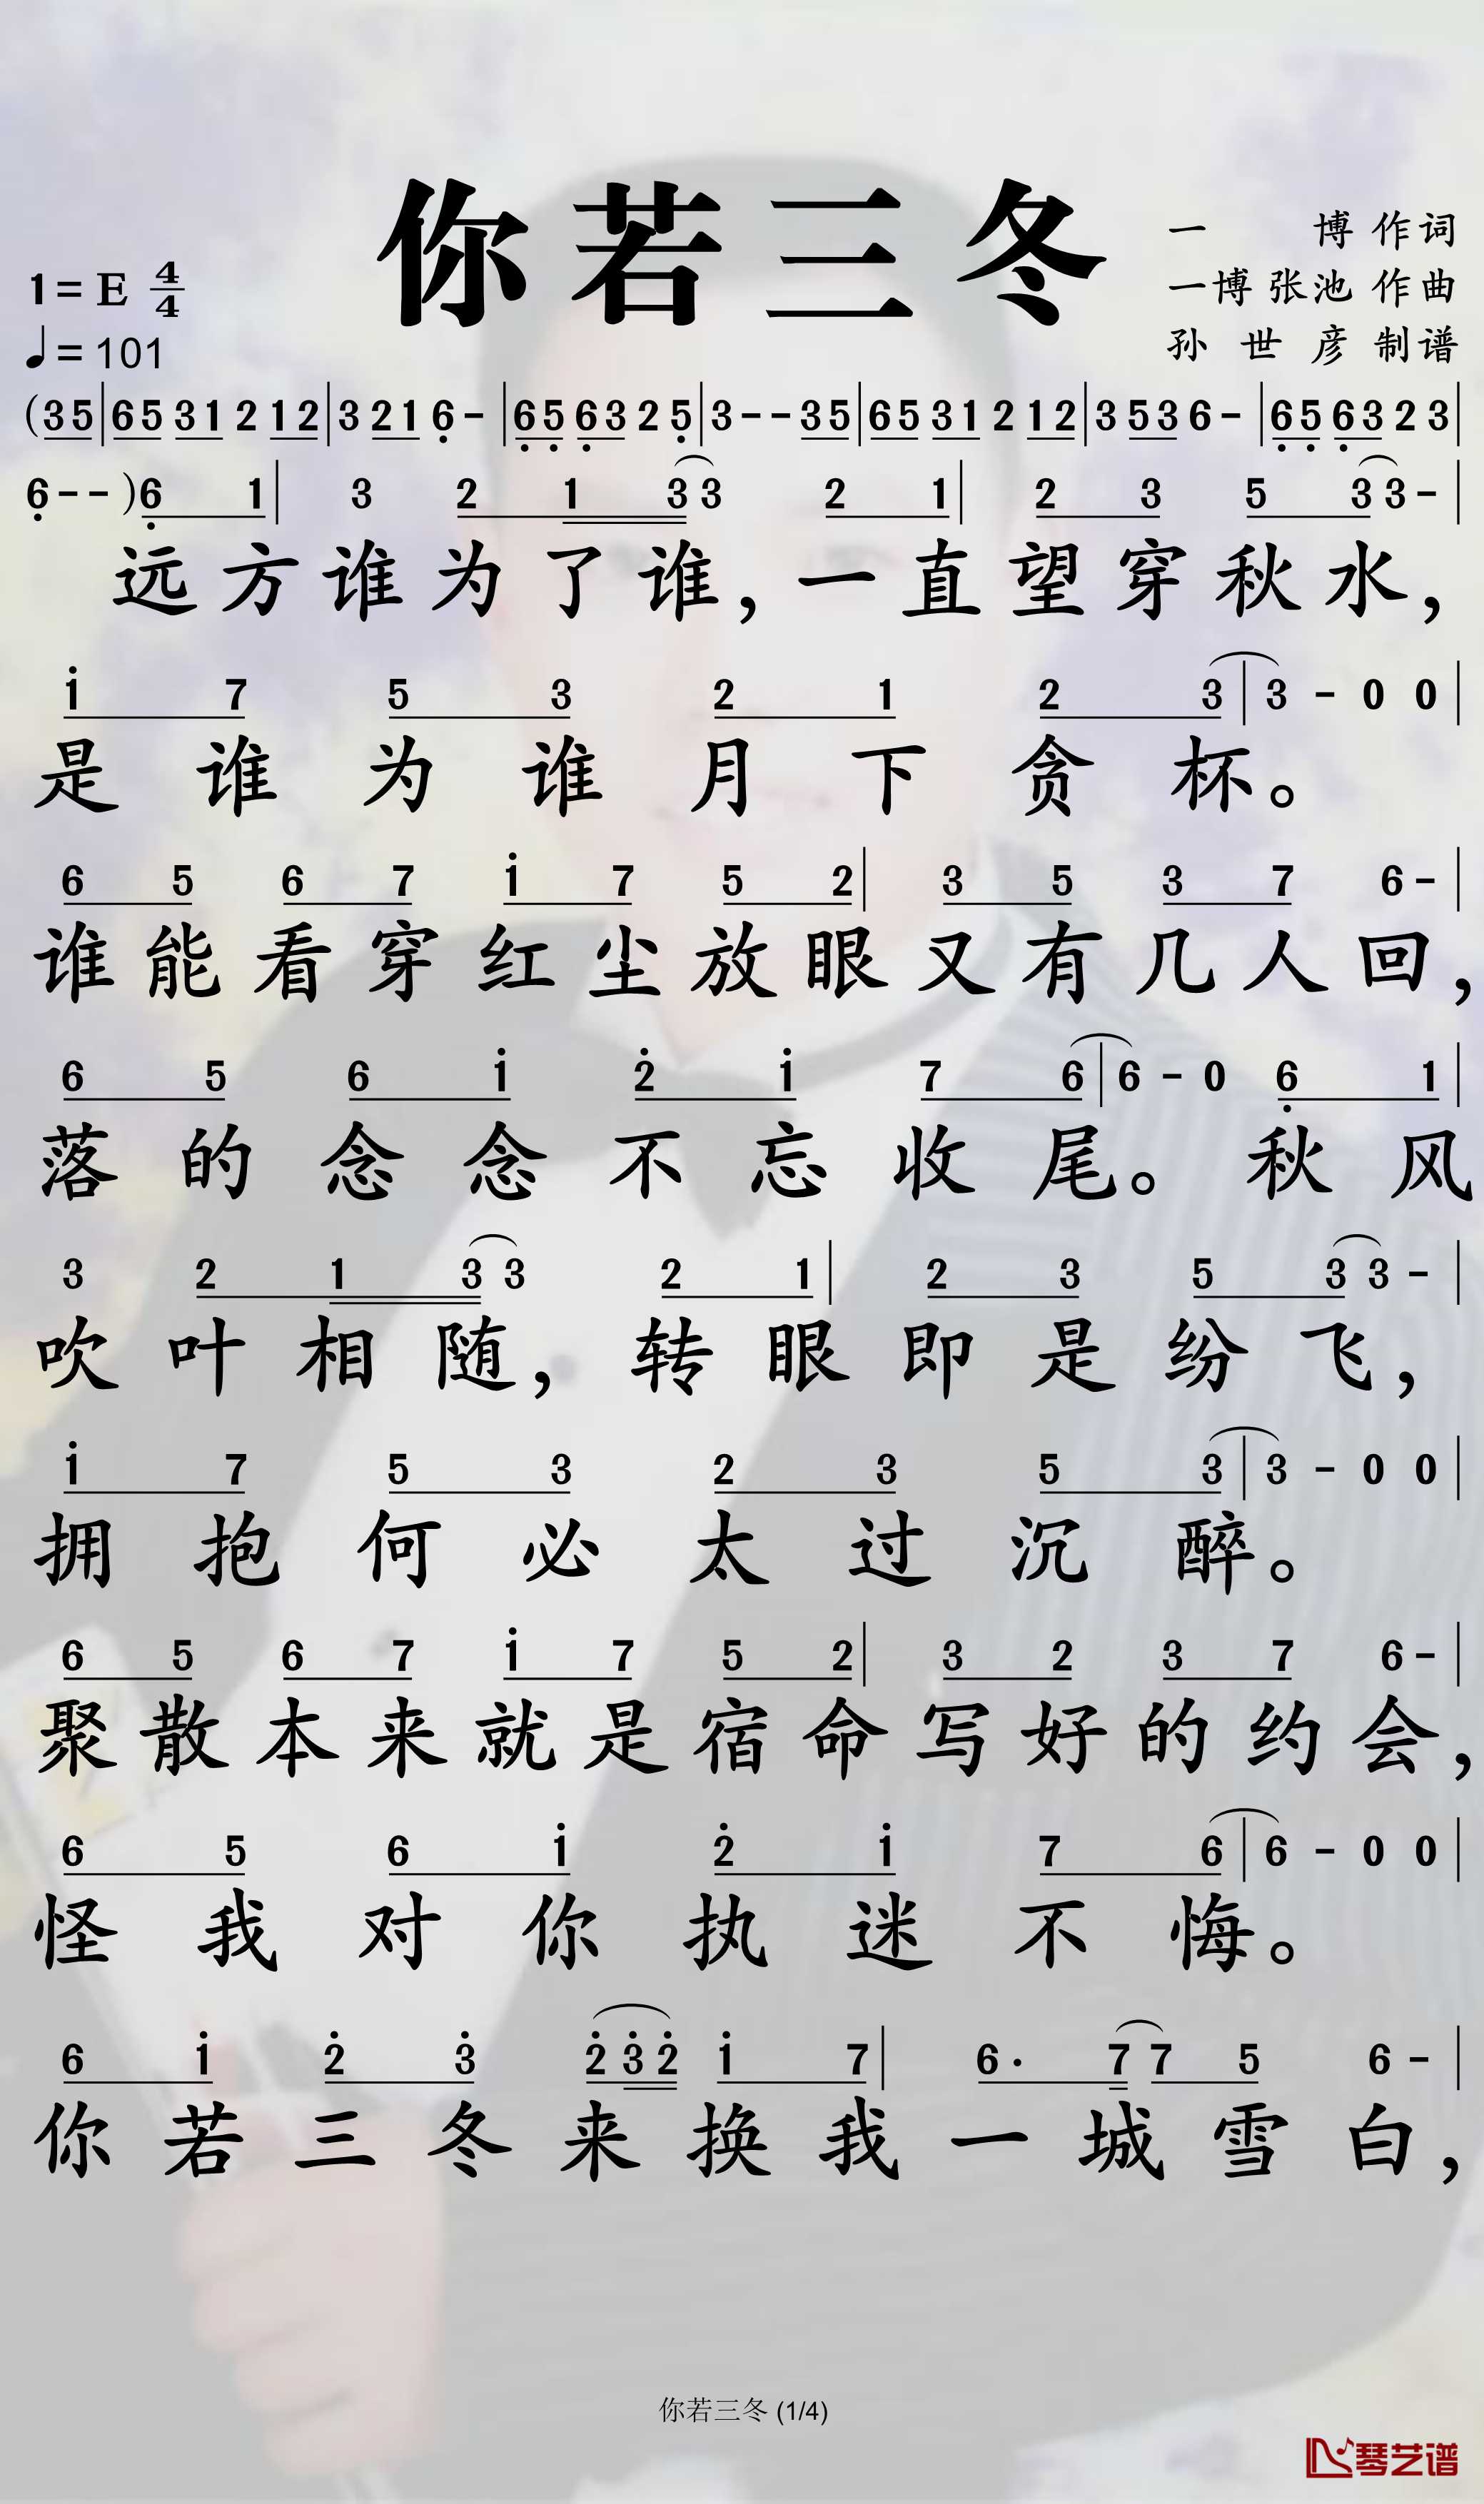 你若三冬
一 博 作词
一博 张池 作曲
孙 世 彦 制谱
1=E 4/4
♩=101
(35|65 31 2 12|3 21 6-|65 63 2 5|3--35|65 31 2 12|3 53 6-|65 63 2 3|
6--)6 1| 3 2 1 33 2 1| 2 3 5 33-|
远方谁为了谁，一直望穿秋水，
i 7 5 3 2 1 2 3|3 - 0 0|
是谁为谁月下贪杯。
6 5 6 7 i 7 5 2|3 5 3 7 6-|
谁能看穿红尘放眼又有几人回，
6 5 6 i 2 i 7 6|6 - 0 6 1|
落的念念不忘收尾。秋风
3 2 1 33 2 1|2 3 5 33-|
吹叶相随，转眼即是纷飞，
i 7 5 3 2 3 5 3|3 - 0 0|
拥抱何必太过沉醉。
6 5 6 7 i 7 5 2|3 2 3 7 6-|
聚散本来就是宿命写好的约会，
6 5 6 i 2 i 7 6|6 - 0 0|
怪我对你执迷不悔。
6 i 2 3 232 i 7|6· 77 5 6-|
你若三冬来换我一城雪白，
你若三冬 (1/4)
琴艺谱